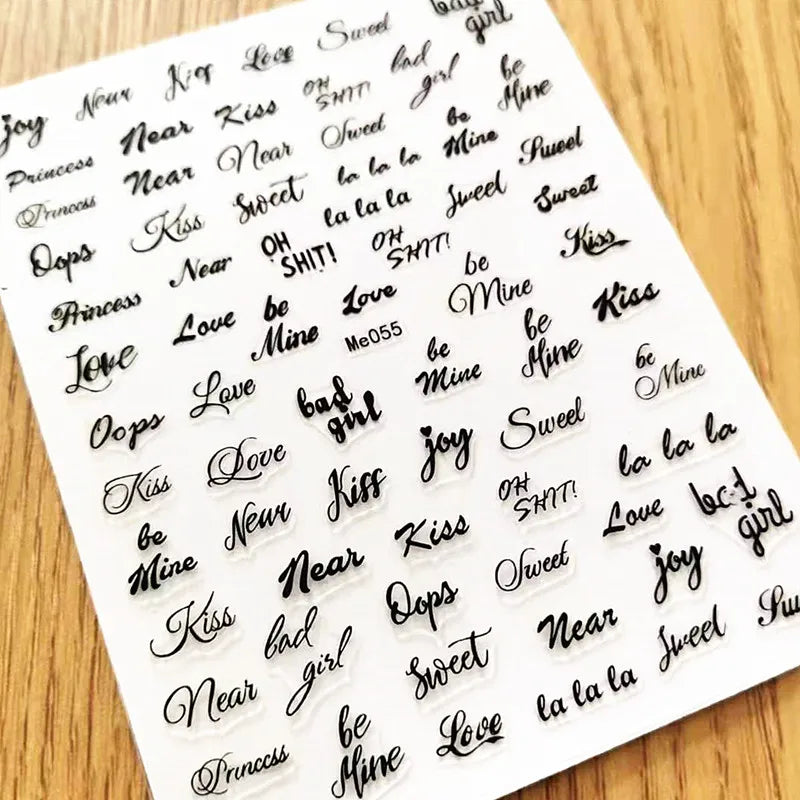 bad girl
joy Near Kiss Love Sweet
Princess Near Kiss OH SHIT! bad girl be Mine
Princess Near Near Sweet be Mine Sweet
Oops Kiss Sweet la la la
la la la Sweet Sweet
Princess Near OH SHIT! OH SHIT! be Mine Kiss
Love Love be Mine Love
Me055
Kiss
Oops Love bad girl be Mine be Mine be Mine
Kiss Love Kiss joy Sweet la la la
be Mine Near Kiss OH SHIT! Love bad girl
Kiss bad girl Near Oops Sweet joy
Near Sweet Near Sweet
Princess be Mine Love la la la